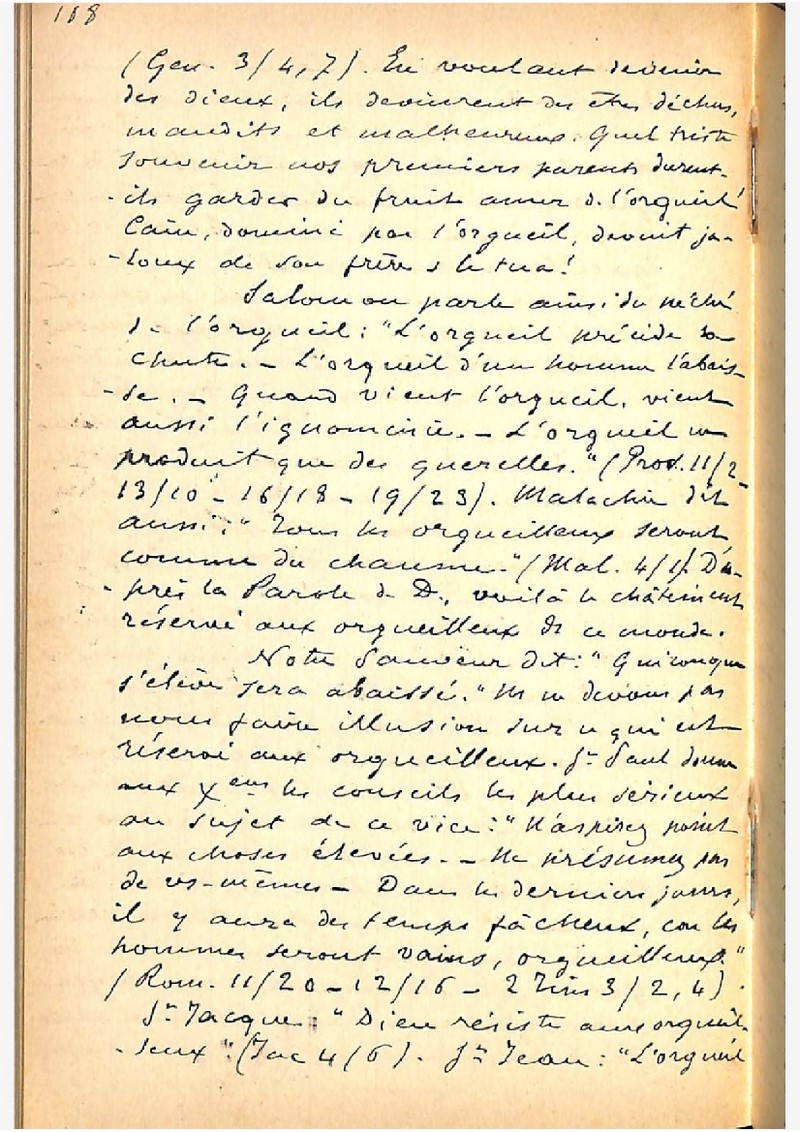 118
(Gen. 3/4,7). En voulant devenir
des dieux, ils devinrent des êtres déchus,
maudits et malheureux. Quel triste
souvenir nos premiers parents durent-
-ils garder du fruit amer de l'orgueil!
Caïn, dominé par l'orgueil, devint ja-
-loux de son frère & le tua!
Salomon parle ainsi du péché
de l'orgueil: "L'orgueil précède la
chute. – L'orgueil d'un homme l'abais-
-se. – Quand vient l'orgueil, vient
aussi l'ignominie. – L'orgueil ne
produit que des querelles." (Prov. 11/2-
13/10 – 16/18 – 19/23). Malachie dit
aussi: "Tous les orgueilleux seront
comme du chaume." (Mal. 4/1). D'a-
-près la Parole de D., voilà le châtiment
réservé aux orgueilleux de ce monde.
Notre Sauveur dit: "Quiconque
s'élève sera abaissé." Ns ne devons pas
nous faire illusion sur ce qui est
réservé aux orgueilleux. St Paul donne
aux Xens les conseils les plus sérieux
au sujet de ce vice: "N'aspirez point
aux choses élevées. – Ne présumez pas
de vs-mêmes – Dans les derniers jours,
il y aura des temps fâcheux, car les
hommes seront vains, orgueilleux."
(Rom. 11/20 – 12/16 – 2 Tim 3/2,4).
St Jacques: "Dieu résiste aux orgueil-
-leux". (Jac 4/6). St Jean: "L'orgueil